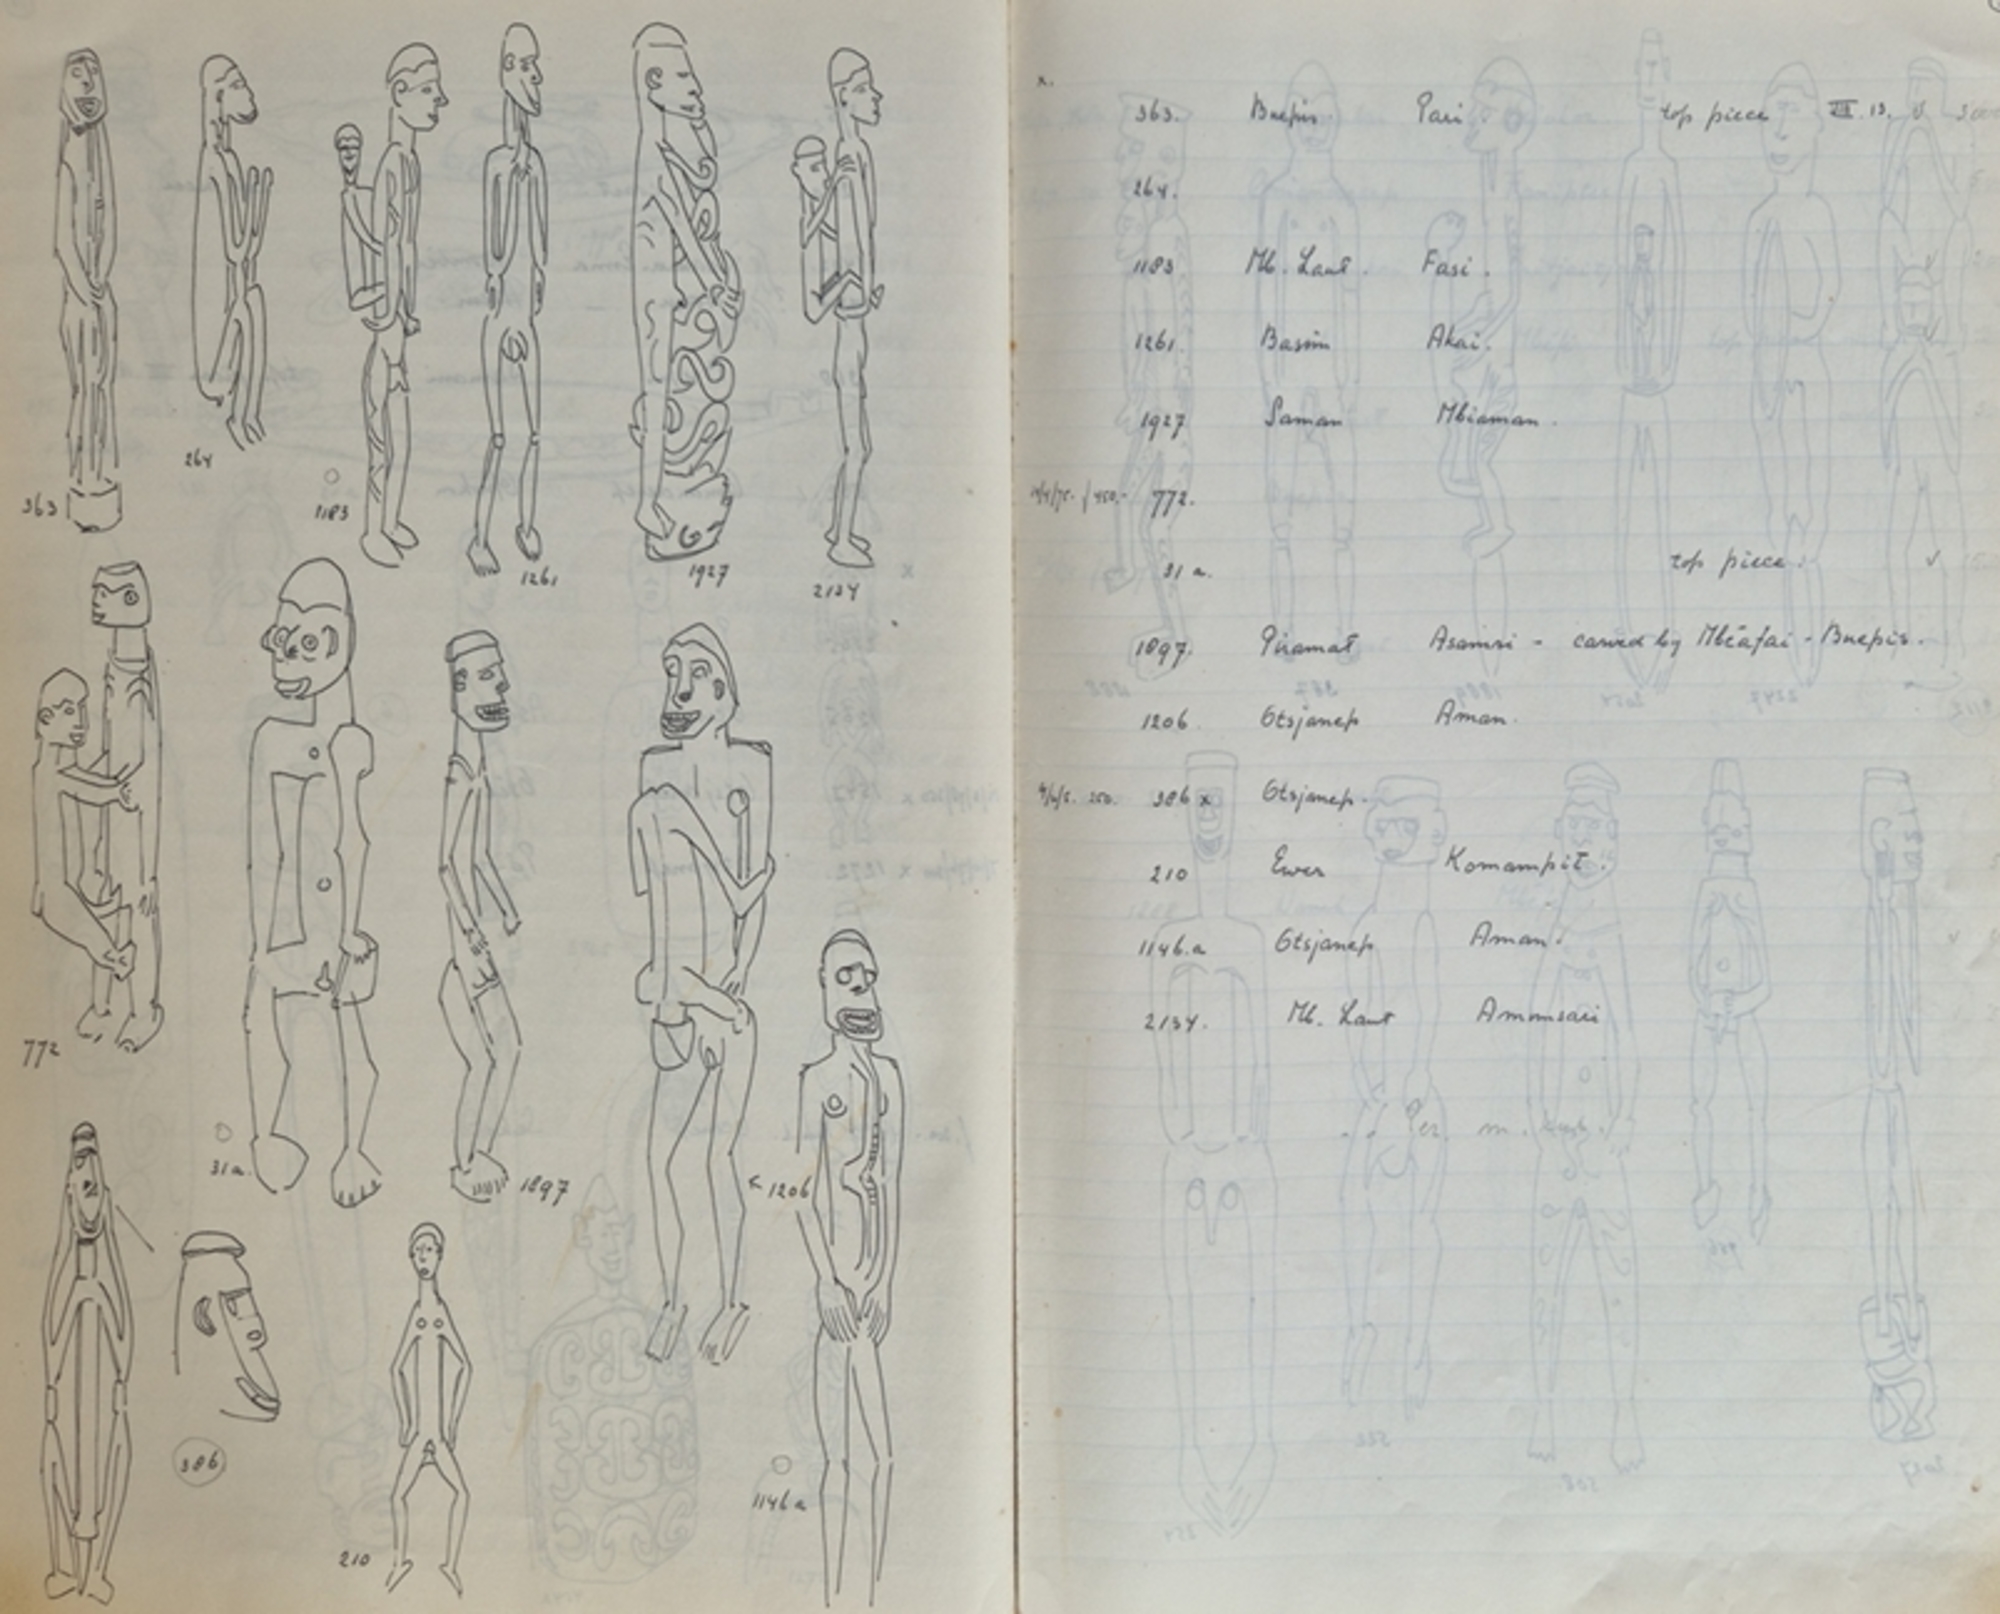 363
264
1183
1261
1927
2134
x
772
31a.
1897
< 1206
386
210
1146a
x.
363. Buepis. Pari. top piece III. 13. v
264.
1183 Mb. Laut. Fasi.
1261. Basim Akai.
1927 Saman Mbiaman.
450.- 772.
31 a. top piece. v
1897. Piramat Asamsi - carved by Mbeafai - Buepis.
1206 Otsjanep Aman.
250. 386 x Otsjanep.
210 Ewer Komampit.
1146.a Otsjanep Aman.
2134. Mb. Laut Amomsari